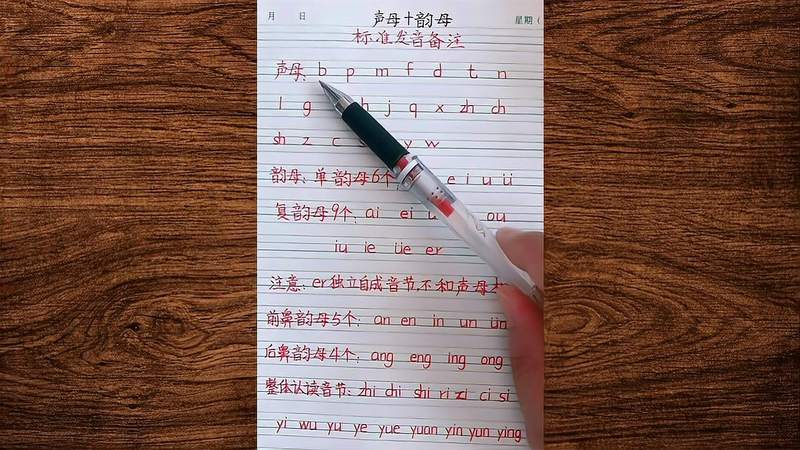 月 日 声母+韵母 星期（
标准发音备注
声母: b p m f d t n
l g h j q x zh ch
sh z c y w
韵母: 单韵母6个: e i u ü
复韵母9个: ai ei ou
iu ie üe er
注意: er独立自成音节,不和声母
前鼻韵母5个: an en in un ün
后鼻韵母4个: ang eng ing ong
整体认读音节: zhi chi shi ri zi ci si
yi wu yu ye yue yuan yin yun ying